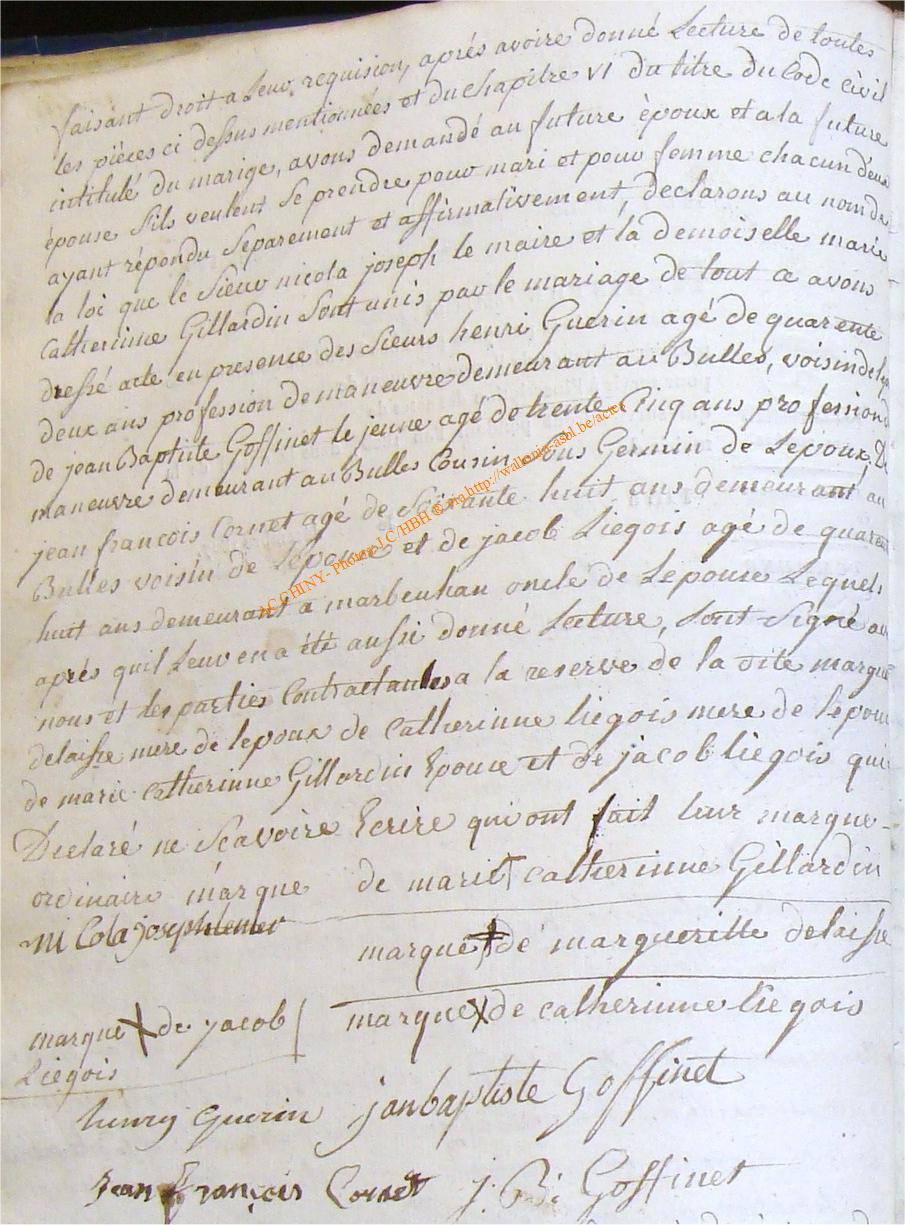 faisant droit a Leur requision, aprés avoire donné Lecture de toutes
les pièces ci dessus mentionnées et du chapitre VI du titre du Code civil
intitulé du marige, avons demandé au future èpoux et a la future
épouse Sils veulent Se prendre pour mari et pour femme chacun deux
ayant répondu Separement et affirmativement, declarons au nom de
la loi que le Sieur nicola joseph le maire et la demoiselle marie
Catherinne Gillardin Sont unis par le mariage de tout ce avons
dressé acte en presence des Sieurs henri Guerin agé de quarente
deux ans profession de maneuvre demeurant au Bulles, voisin de
de jean Baptiste Goffinet le jeune agé de trente Cinq ans profession
maneuvre demeurant au Bulles Cousin Germin de Lepoux, De
jean françois Cornet agé de Soixante huit ans demeurant au
Bulles voisin de Lepouse et de jacob Liegois agé de quarent
huit ans demeurant a marbeuhan oncle de Lepouse Lequels
aprés quil Leur en a été aussi donné Lecture, Sont Signé av
nous et les parties Contractantes a la reserve de la dite margue
delaisse mere de lepoux de Catherinne liegois mere de lepou
de marie catherinne Gillardin Epouse et de jacob liegois qui
Declaré ne Scavoire Ecrire qui ont fait leur marque
ordinaire marque de marie catherinne Gillardin
ni Cola joseph lemer
marque de margueritte delaisse
marque X de jacob marque X de catherinne liegois
Liegois
henry Guerin janbaptiste Goffinet
Jean François Cornet j. Goffinet
AC CHINY - Photos J.C/HBH © sg http://wallonia-asbl.be/actes